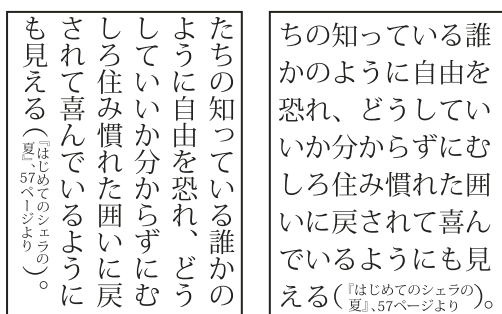 たちの知っている誰かの
ように自由を恐れ、どう
していいか分からずにむ
しろ住み慣れた囲いに戻
されて喜んでいるように
も見える(『はじめてのシェラの
夏』、57ページより)。
ちの知っている誰
かのように自由を
恐れ、どうしてい
いか分からずにむ
しろ住み慣れた囲
いに戻されて喜ん
でいるようにも見
える(『はじめてのシェラの
夏』、57ページより)。